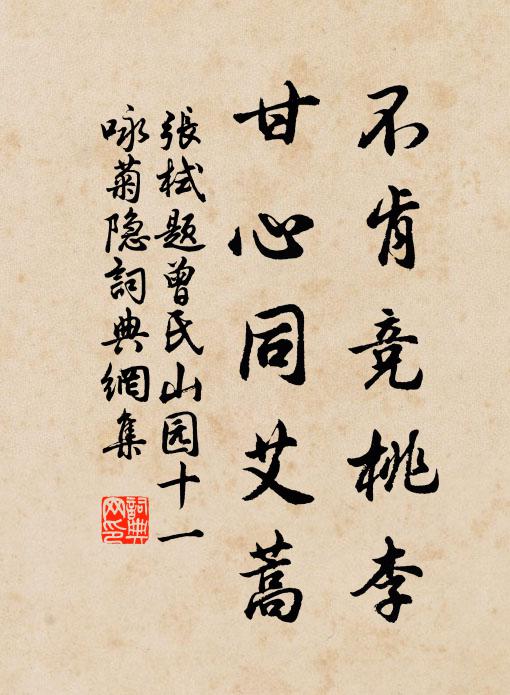 不肯竞桃李
甘心同艾蒿
張栻題曾氏山园十一
咏菊隐詞典網集
詞典
网印